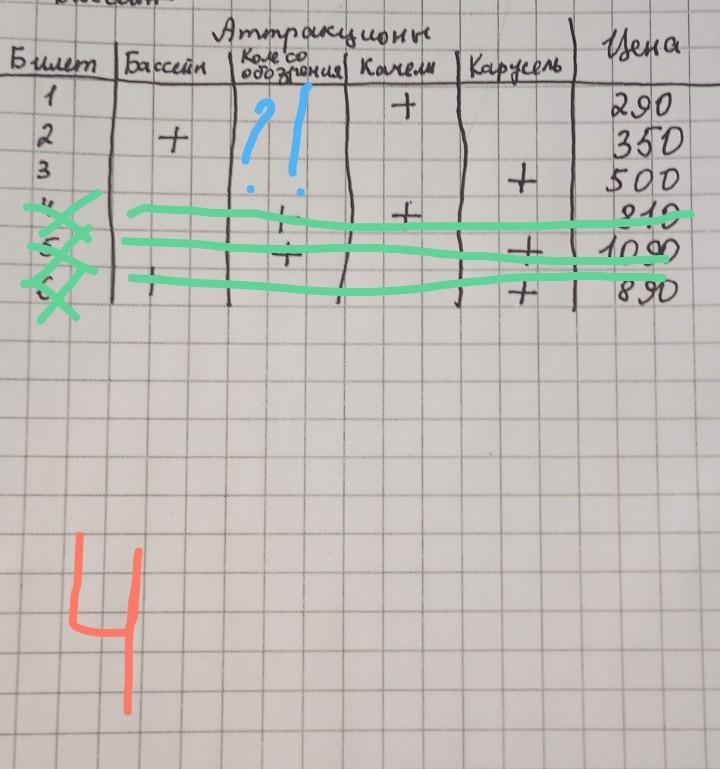 Аттракционы
Билет Бассейн Колесо обозрения Качели Карусель Цена
1 + 290
2 + 350
3 + 500
4 + + 810
5 + + 1090
6 + + 890
?!
4